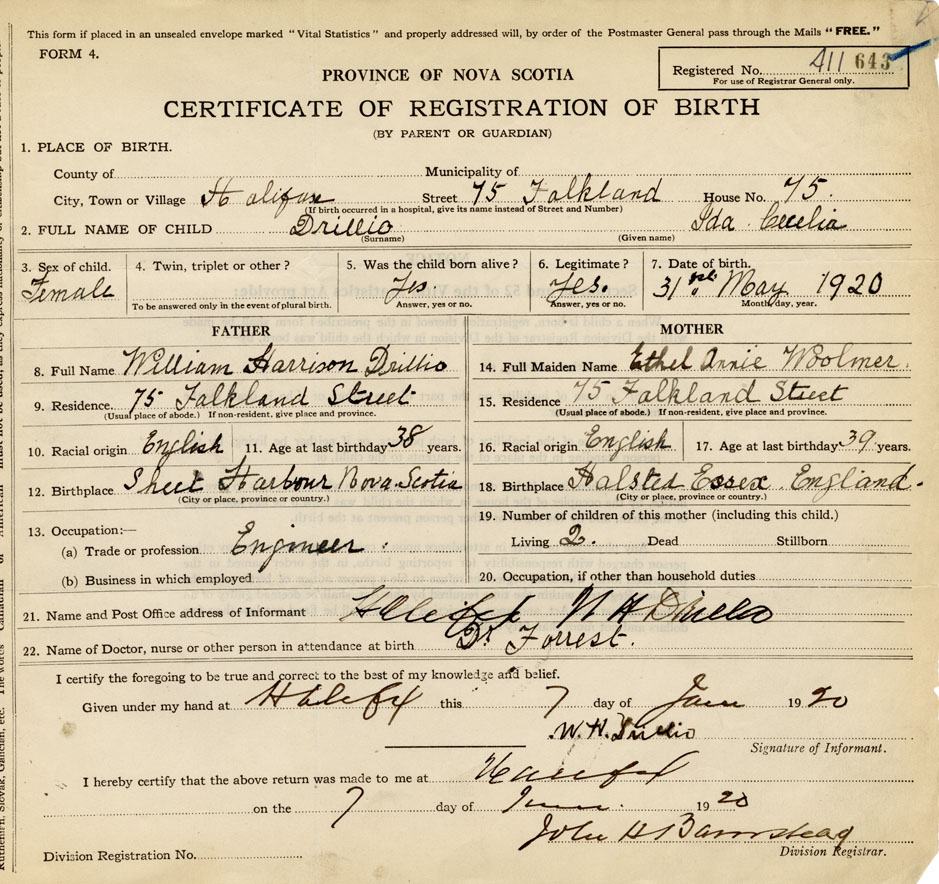 This form if placed in an unsealed envelope marked "Vital Statistics" and properly addressed will, by order of the Postmaster General pass through the Mails "FREE."
FORM 4.
Registered No. 411 643
For use of Registrar General only.
PROVINCE OF NOVA SCOTIA
CERTIFICATE OF REGISTRATION OF BIRTH
(BY PARENT OR GUARDIAN)
1. PLACE OF BIRTH.
County of Municipality of
City, Town or Village Halifax Street 75 Falkland House No. 75.
(If birth occurred in a hospital, give its name instead of Street and Number)
2. FULL NAME OF CHILD Drillio Ida Cecelia
(Surname) (Given name)
3. Sex of child. 4. Twin, triplet or other? 5. Was the child born alive? 6. Legitimate? 7. Date of birth.
Female Yes. Yes. 31st May 1920
To be answered only in the event of plural birth. Answer, yes or no. Answer, yes or no. Month, day, year.
FATHER MOTHER
8. Full Name William Harrison Drillio 14. Full Maiden Name Ethel Annie Woolmer.
9. Residence. 75 Falkland Street 15. Residence 75 Falkland Street
(Usual place of abode.) If non-resident, give place and province. (Usual place of abode.) If non-resident, give place and province.
10. Racial origin English 11. Age at last birthday 38 years. 16. Racial origin English 17. Age at last birthday 39 years.
12. Birthplace Sheet Harbour Nova Scotia 18. Birthplace Halsted Essex England.
(City or place, province or country.) (City or place, province or country.)
13. Occupation:— 19. Number of children of this mother (including this child.)
(a) Trade or profession Engineer. Living 2. Dead Stillborn
(b) Business in which employed 20. Occupation, if other than household duties
21. Name and Post Office address of Informant Halifax W H Drillio
22. Name of Doctor, nurse or other person in attendance at birth Dr Forrest.
I certify the foregoing to be true and correct to the best of my knowledge and belief.
Given under my hand at Halifax this 7 day of June 1920
W. H. Drillio
Signature of Informant.
I hereby certify that the above return was made to me at Halifax
on the 7 day of June 1920
John H Barnstead
Division Registrar.
Division Registration No.